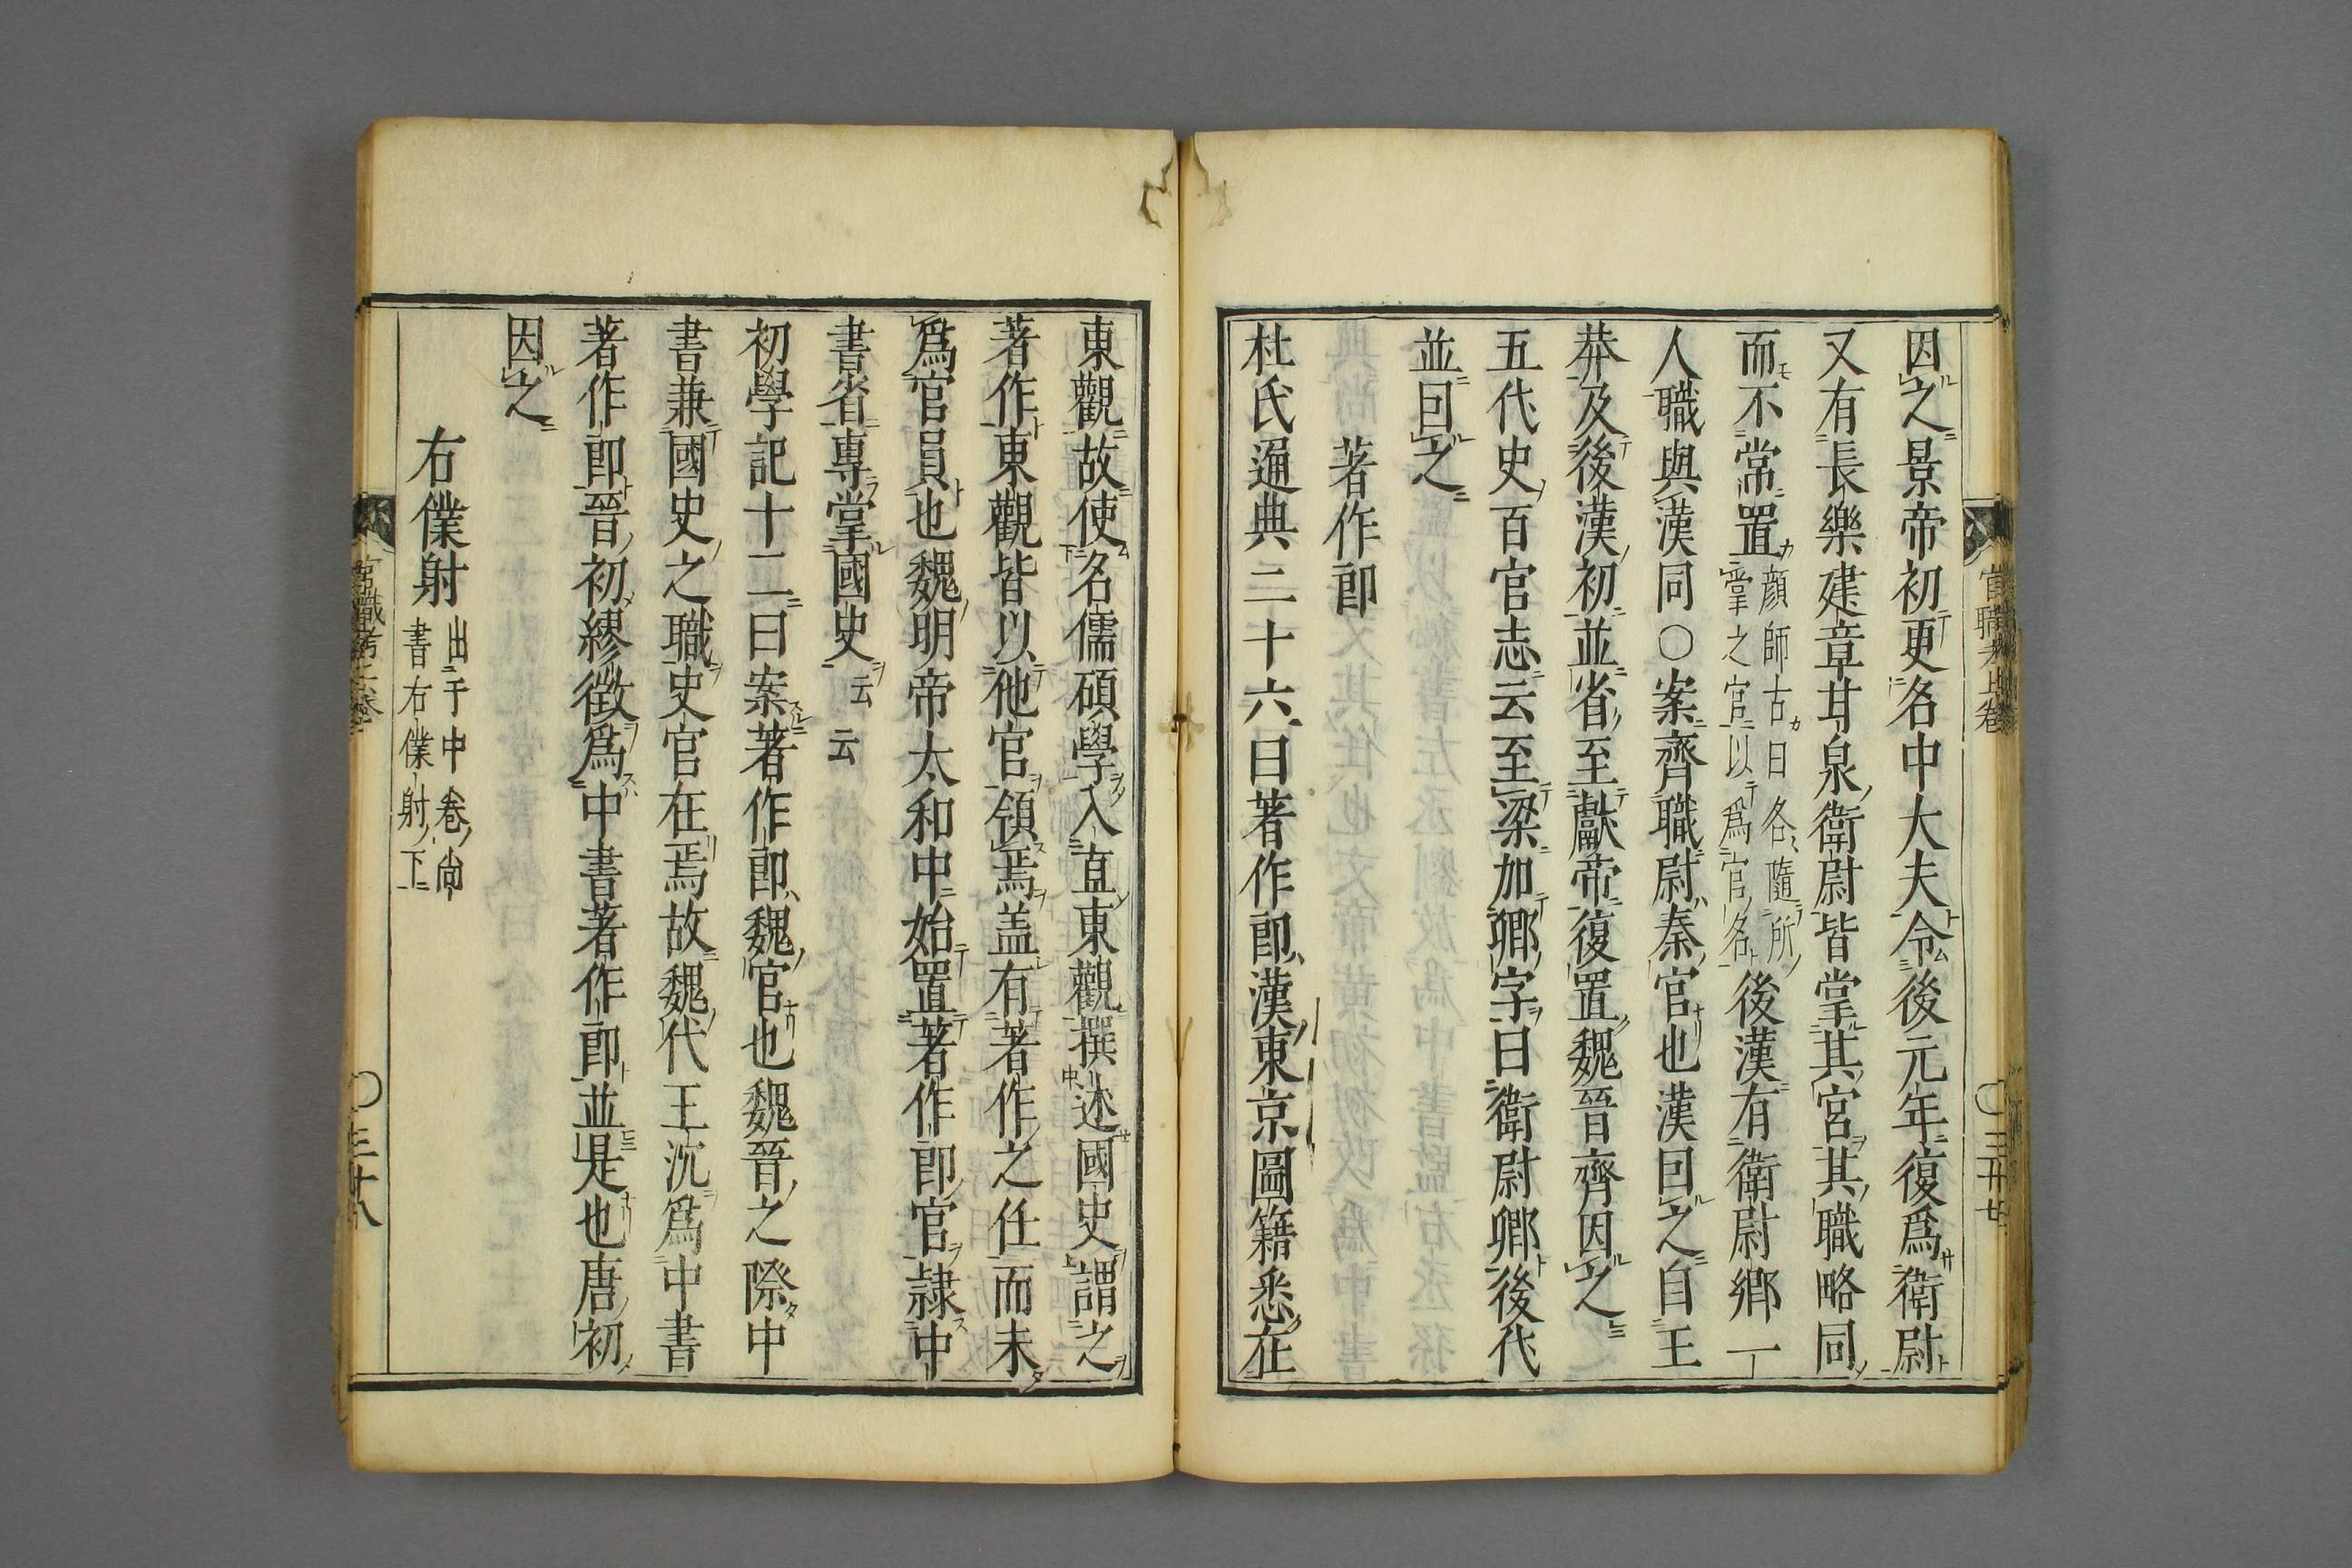 因之景帝初更名中大夫令後元年復爲衛尉
又有長樂建章甘泉衛尉皆掌其宮其職略同
而不常置顔師古曰各隨所掌之官以爲官名後漢有衛尉鄉一
人職與漢同○案齊職尉秦官也漢因之自王
莽及後漢初並省至獻帝復置魏晉齊因之
五代史百官志云至梁加卿字曰衛尉卿後代
並因之
著作郎
杜氏通典二十六曰著作郎漢東京圖籍悉在
東觀故使名儒碩學入直東觀撰述國史謂之
著作東觀皆以他官領焉盖有著作之任而未
爲官員也魏明帝太和中始置著作郎官隷中
書省專掌國史云云
初學記十二曰案著作郎魏官也魏晉之際中
書兼國史之職史官在焉故魏代王沉爲中書
著作郎晉初繆徵爲中書著作郎並是也唐初
因之
右僕射出于中卷尚書右僕射下